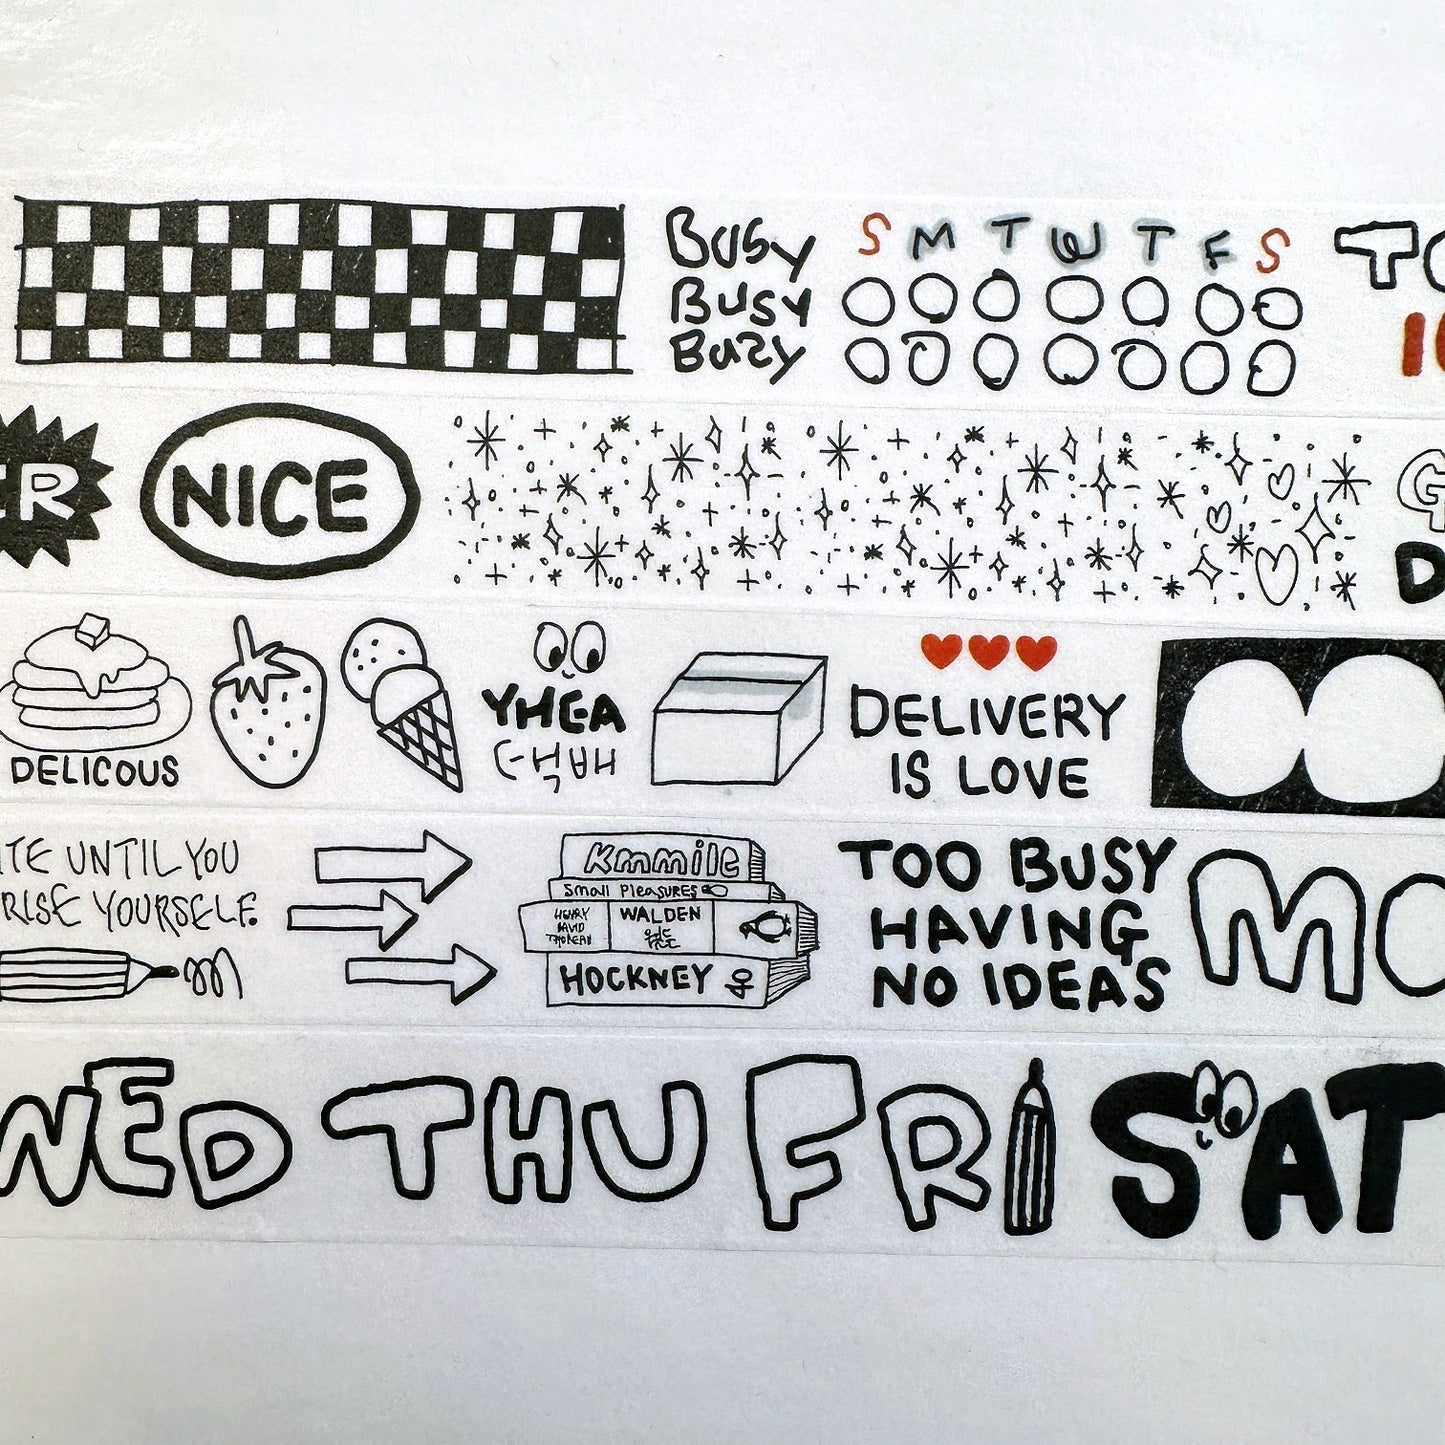 Busy
Busy
Buzy
S M T W T F S
NICE
DELICOUS
YHEA
택배
DELIVERY
IS LOVE
UNTIL YOU
YOURSELF.
Kmmile
Small PleaSURES
HENRY
DAVID
THOREAU
WALDEN
HOCKNEY
TOO BUSY
HAVING
NO IDEAS
WED THU FRI SAT